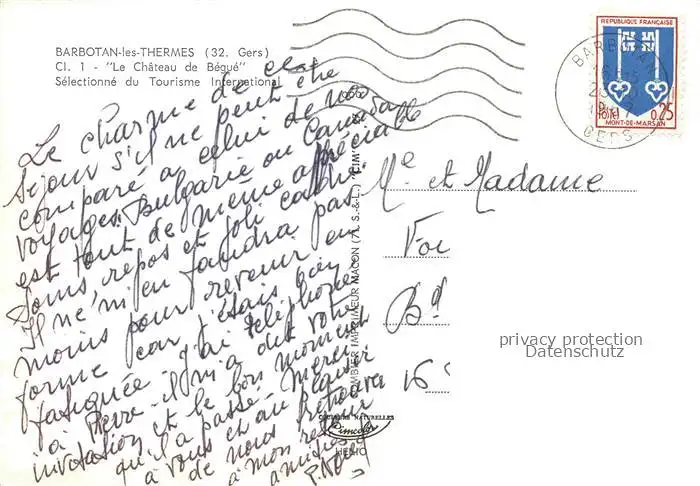 BARBOTAN-les-THERMES (32. Gers)
Cl. 1 - "Le Château de Bégué"
Sélectionné du Tourisme International
Le charme de cet
séjour s'il ne peut être
comparé à celui de nos
voyages Bulgarie ou Canada
est tout de même appréciable
Soins, repos et joli cadre.
Il ne m'en faudra pas
moins pour revenir en
forme car j'étais bien
fatiguée. J'ai téléphoné
à Pierre. il m'a dit votre
invitation et le bon moment
qu'il a passé. Merci
à vous et au plaisir
de nous retrouver
à mon retour
amitiés
COMBIER IMPRIMEUR MACON (71. S.-&-L.) "CIM"
COULEURS NATURELLES
Cimcolor
REPUBLIQUE FRANÇAISE
POSTES
0,25
MONT-DE-MARSAN
BARBOTAN
GERS
Me et Madame
Fou
Bd
16
privacy protection
Datenschutz